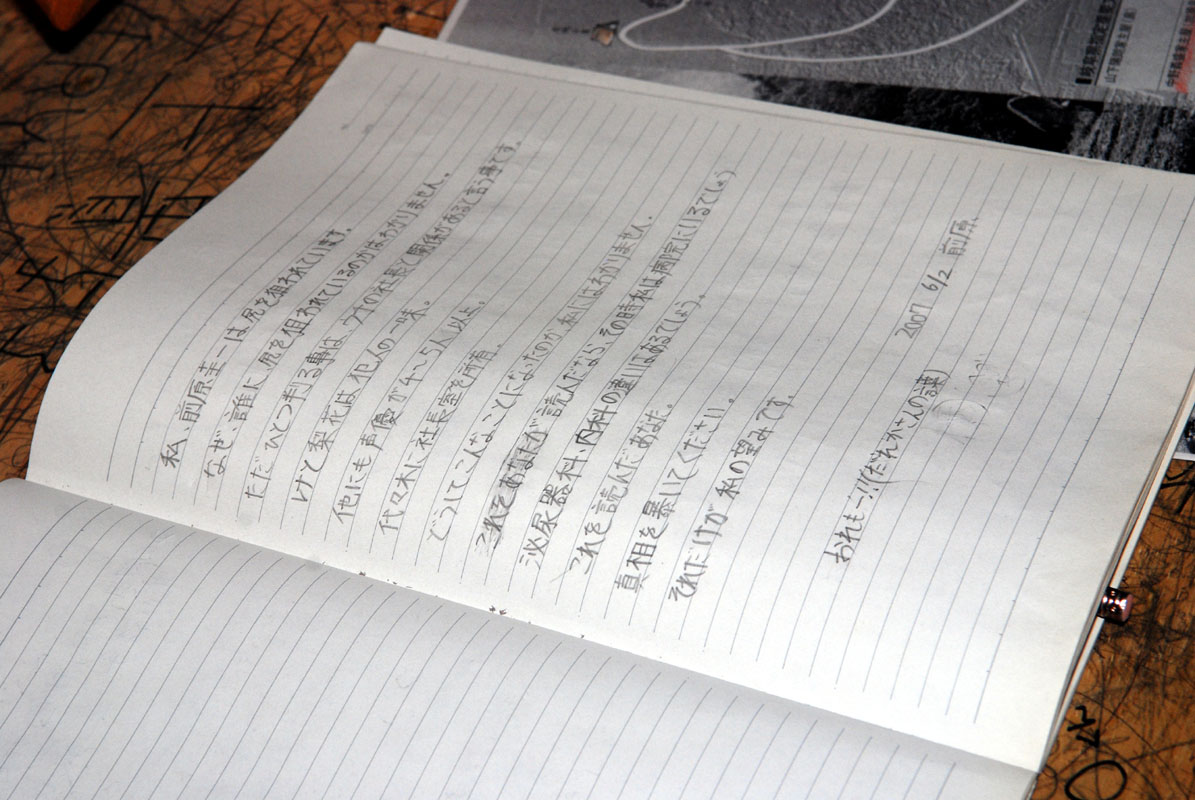 私、前原圭一は尻を狙われています。
なぜ、誰に、尻を狙われているのかはわかりません。
ただひとつ判る事は、ウホの社長と関係があると言う事です。
レナと梨花は犯人の一味。
他にも声優が4〜5人以上。
代々木に社長室を所有。
どうしてこんなことになったのか、私にはわかりません。
これをあなたが読んだなら、その時私は病院にいるでしょう
泌尿器科、内科の違いはあるでしょう。
これを読んだあなた。
真相を暴いてください。
それだけが私の望みです。
おれもー!!(だれかさんの謎)
2007 6/2 前原